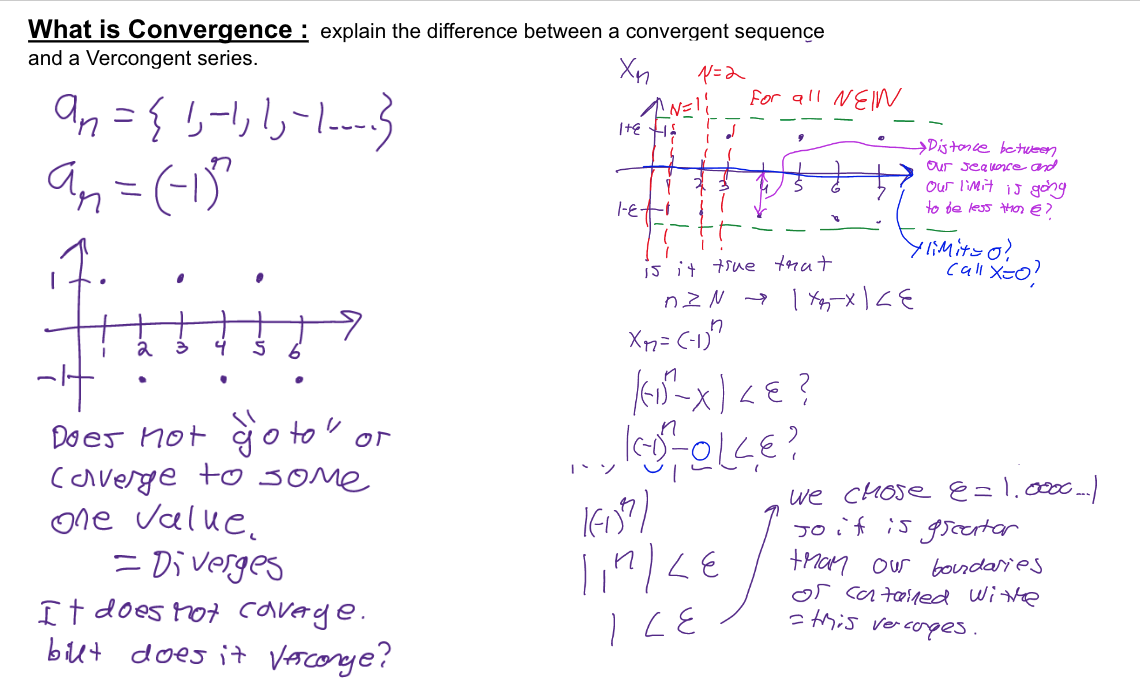 What is Convergence : explain the difference between a convergent sequence
and a Vercongent series.
aₙ = { 1, -1, 1, -1.....}
aₙ = (-1)ⁿ
1
1 2 3 4 5 6
-1
Does not "go to" or
converge to some
one value.
= Diverges
It does not converge.
but does it Verconge?
Xₙ N=2
N=1 For all N∈ℕ
1+ε 1
1 2 3 4 5 6 7
1-ε
Distance between
our sequence and
our limit is going
to be less than ε?
limit=0?
call X=0?
is it true that
n≥N → |xₙ-x|<ε
Xₙ=(-1)ⁿ
|(-1)ⁿ-x| < ε ?
|(-1)ⁿ-0|<ε?
|(-1)ⁿ|
|1ⁿ| < ε
1 < ε
we chose ε = 1.0000...1
so it is greater
than our boundaries
or contained within
= this verconges.